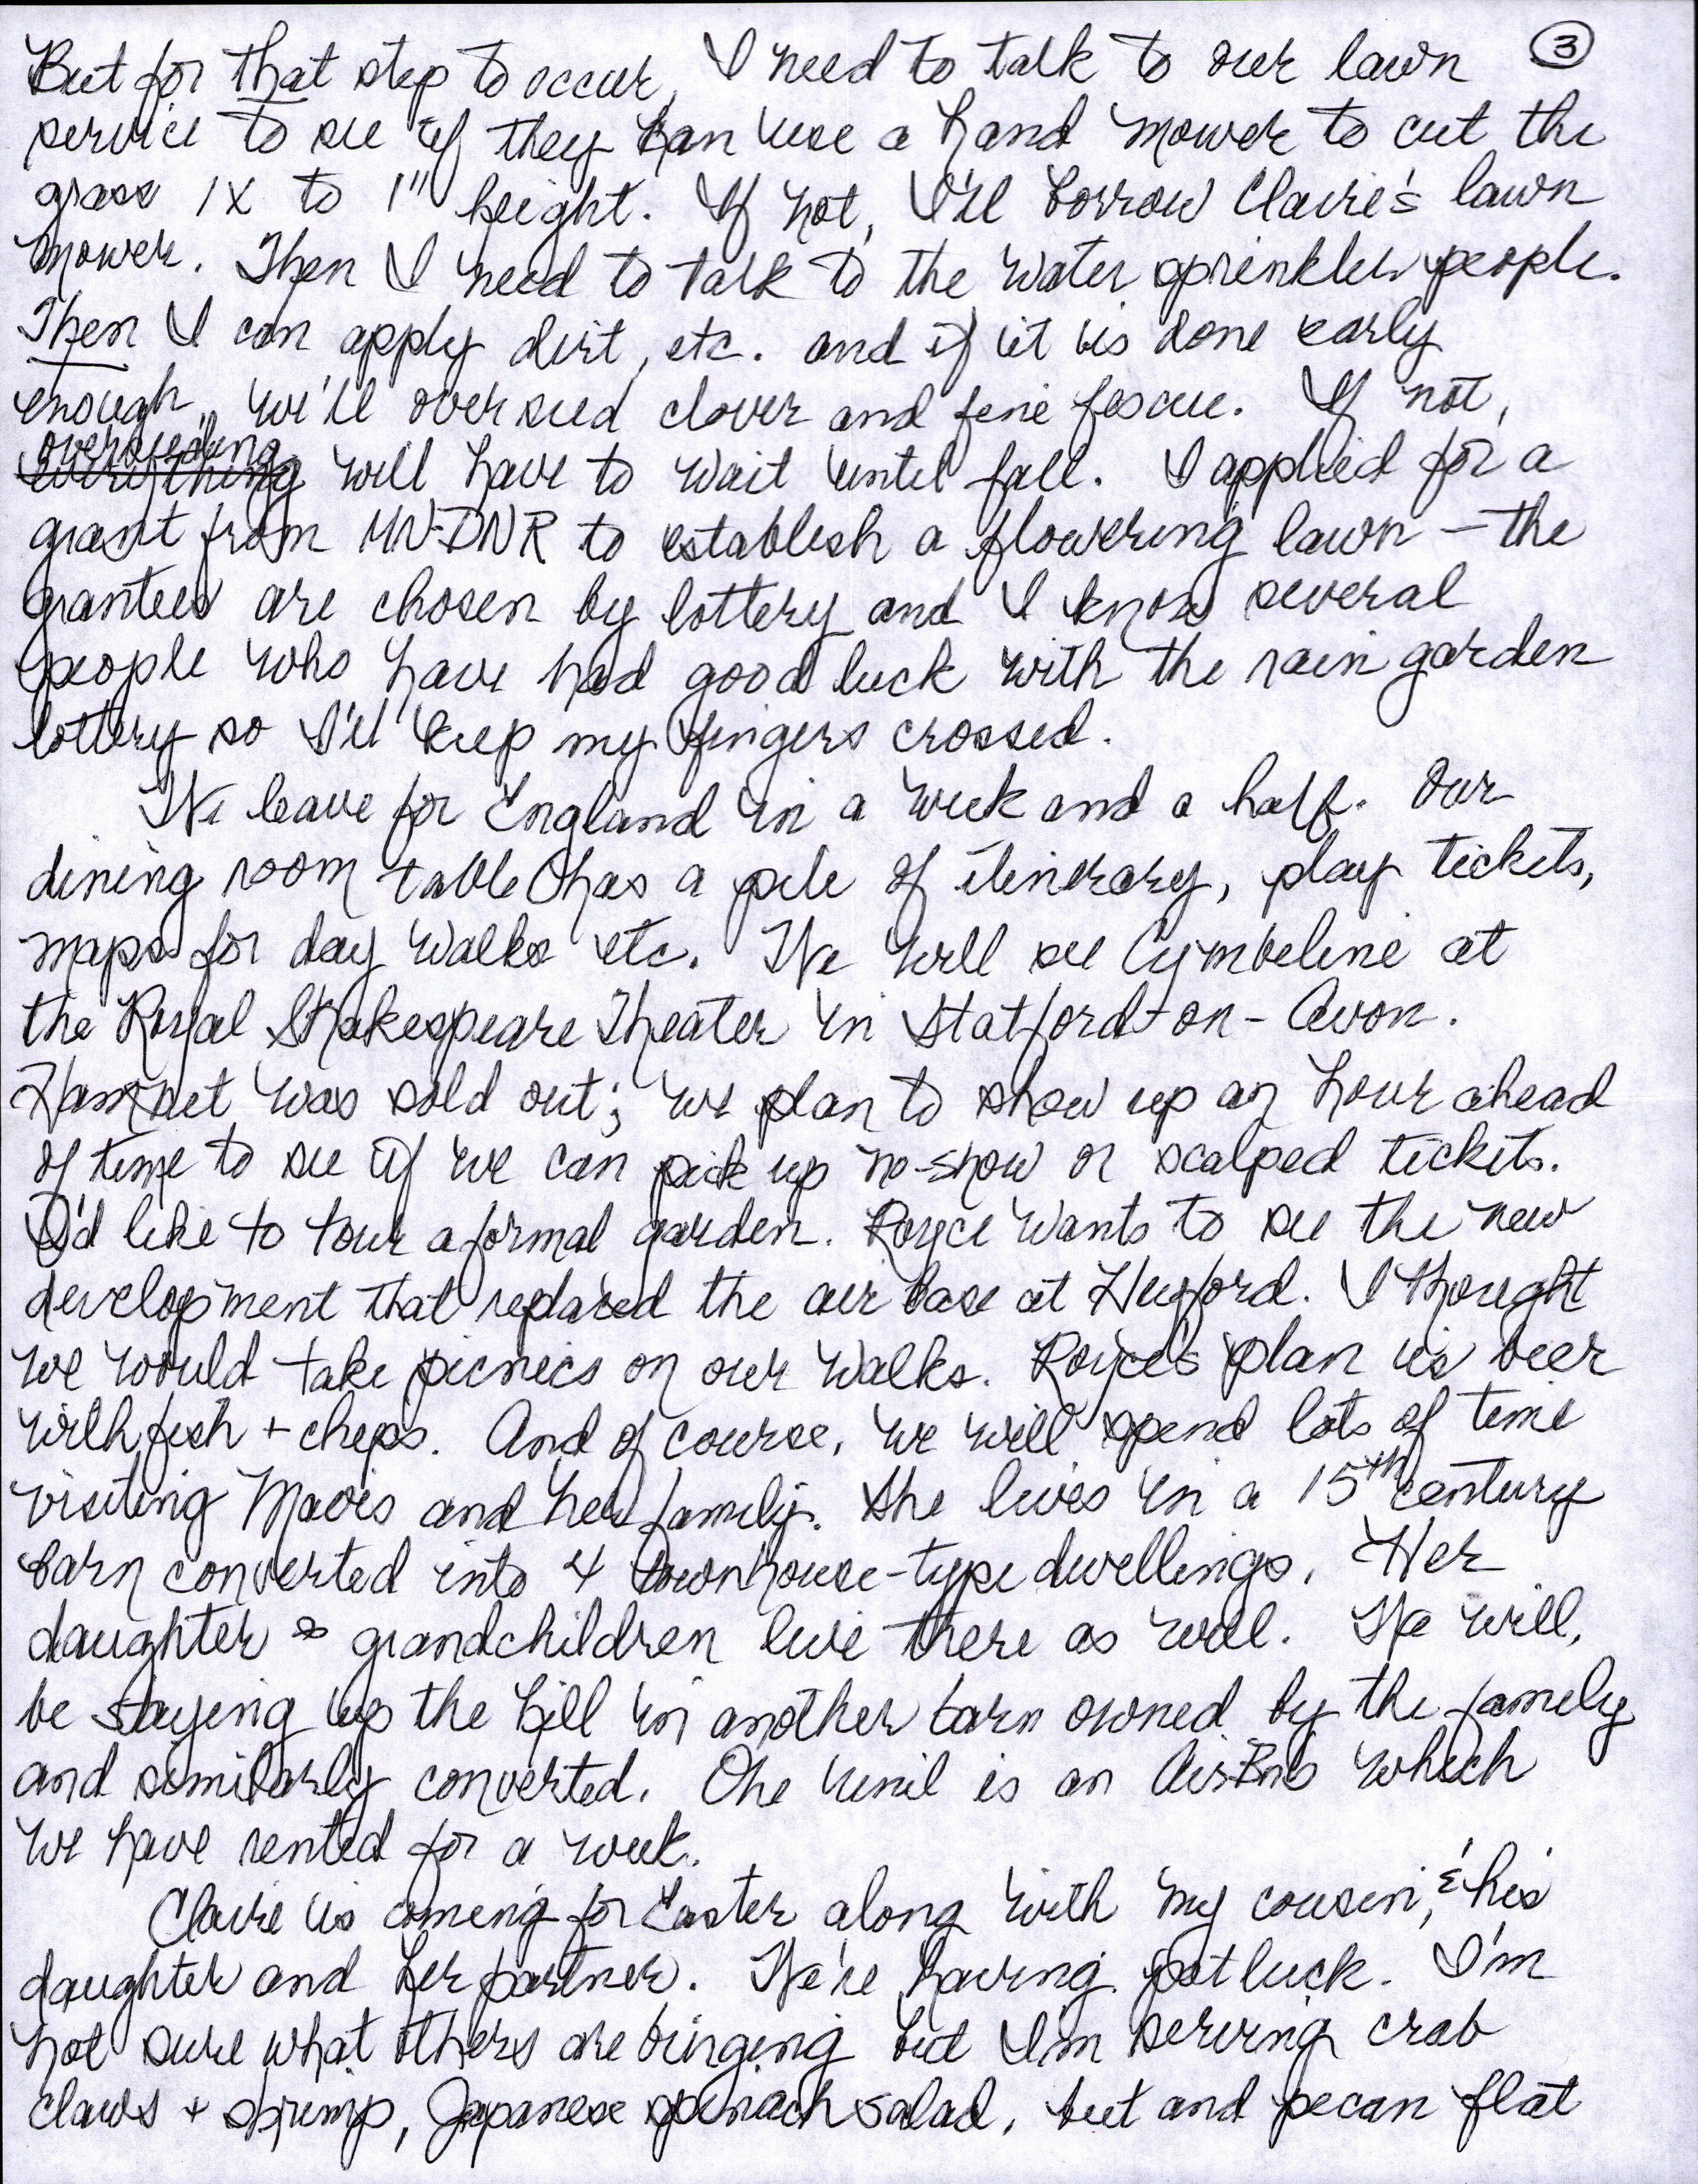 But for that step to occur, I need to talk to our lawn ③
service to see if they can use a hand mower to cut the
grass 1X to 1" height. If not, I'll borrow Claire's lawn
mower. Then I need to talk to the water sprinkler people.
Then I can apply dirt, etc. and if it is done early
enough, we'll overseed clover and fine fescue. If not,
overseeding
~~everything~~ will have to wait until fall. I applied for a
grant from MN-DNR to establish a flowering lawn – the
grantees are chosen by lottery and I know several
people who have had good luck with the rain garden
lottery so I'll keep my fingers crossed.
We leave for England in a week and a half. Our
dining room table has a pile of itinerary, play tickets,
maps for day walks etc. We will see Cymbeline at
the Royal Shakespeare Theater in Statford-on-Avon.
Hamnet was sold out; we plan to show up an hour ahead
of time to see if we can pick up no-show or scalped tickets.
I'd like to tour a formal garden. Royce wants to see the new
development that replaced the air base at Heyford. I thought
we would take picnics on our walks. Royce's plan is beer
with fish + chips. And of course, we will spend lots of time
visiting Mavis and her family. She lives in a 15th century
barn converted into 4 townhouse-type dwellings. Her
daughter & grandchildren live there as well. We will,
be staying up the hill in another barn owned by the family
and similarly converted. One unit is an AirBnb which
we have rented for a week.
Claire is coming for Easter along with my cousin, & his
daughter and her partner. We're having potluck. I'm
not sure what others are bringing but I'm serving crab
claws + shrimp, Japanese spinach salad, beet and pecan flat